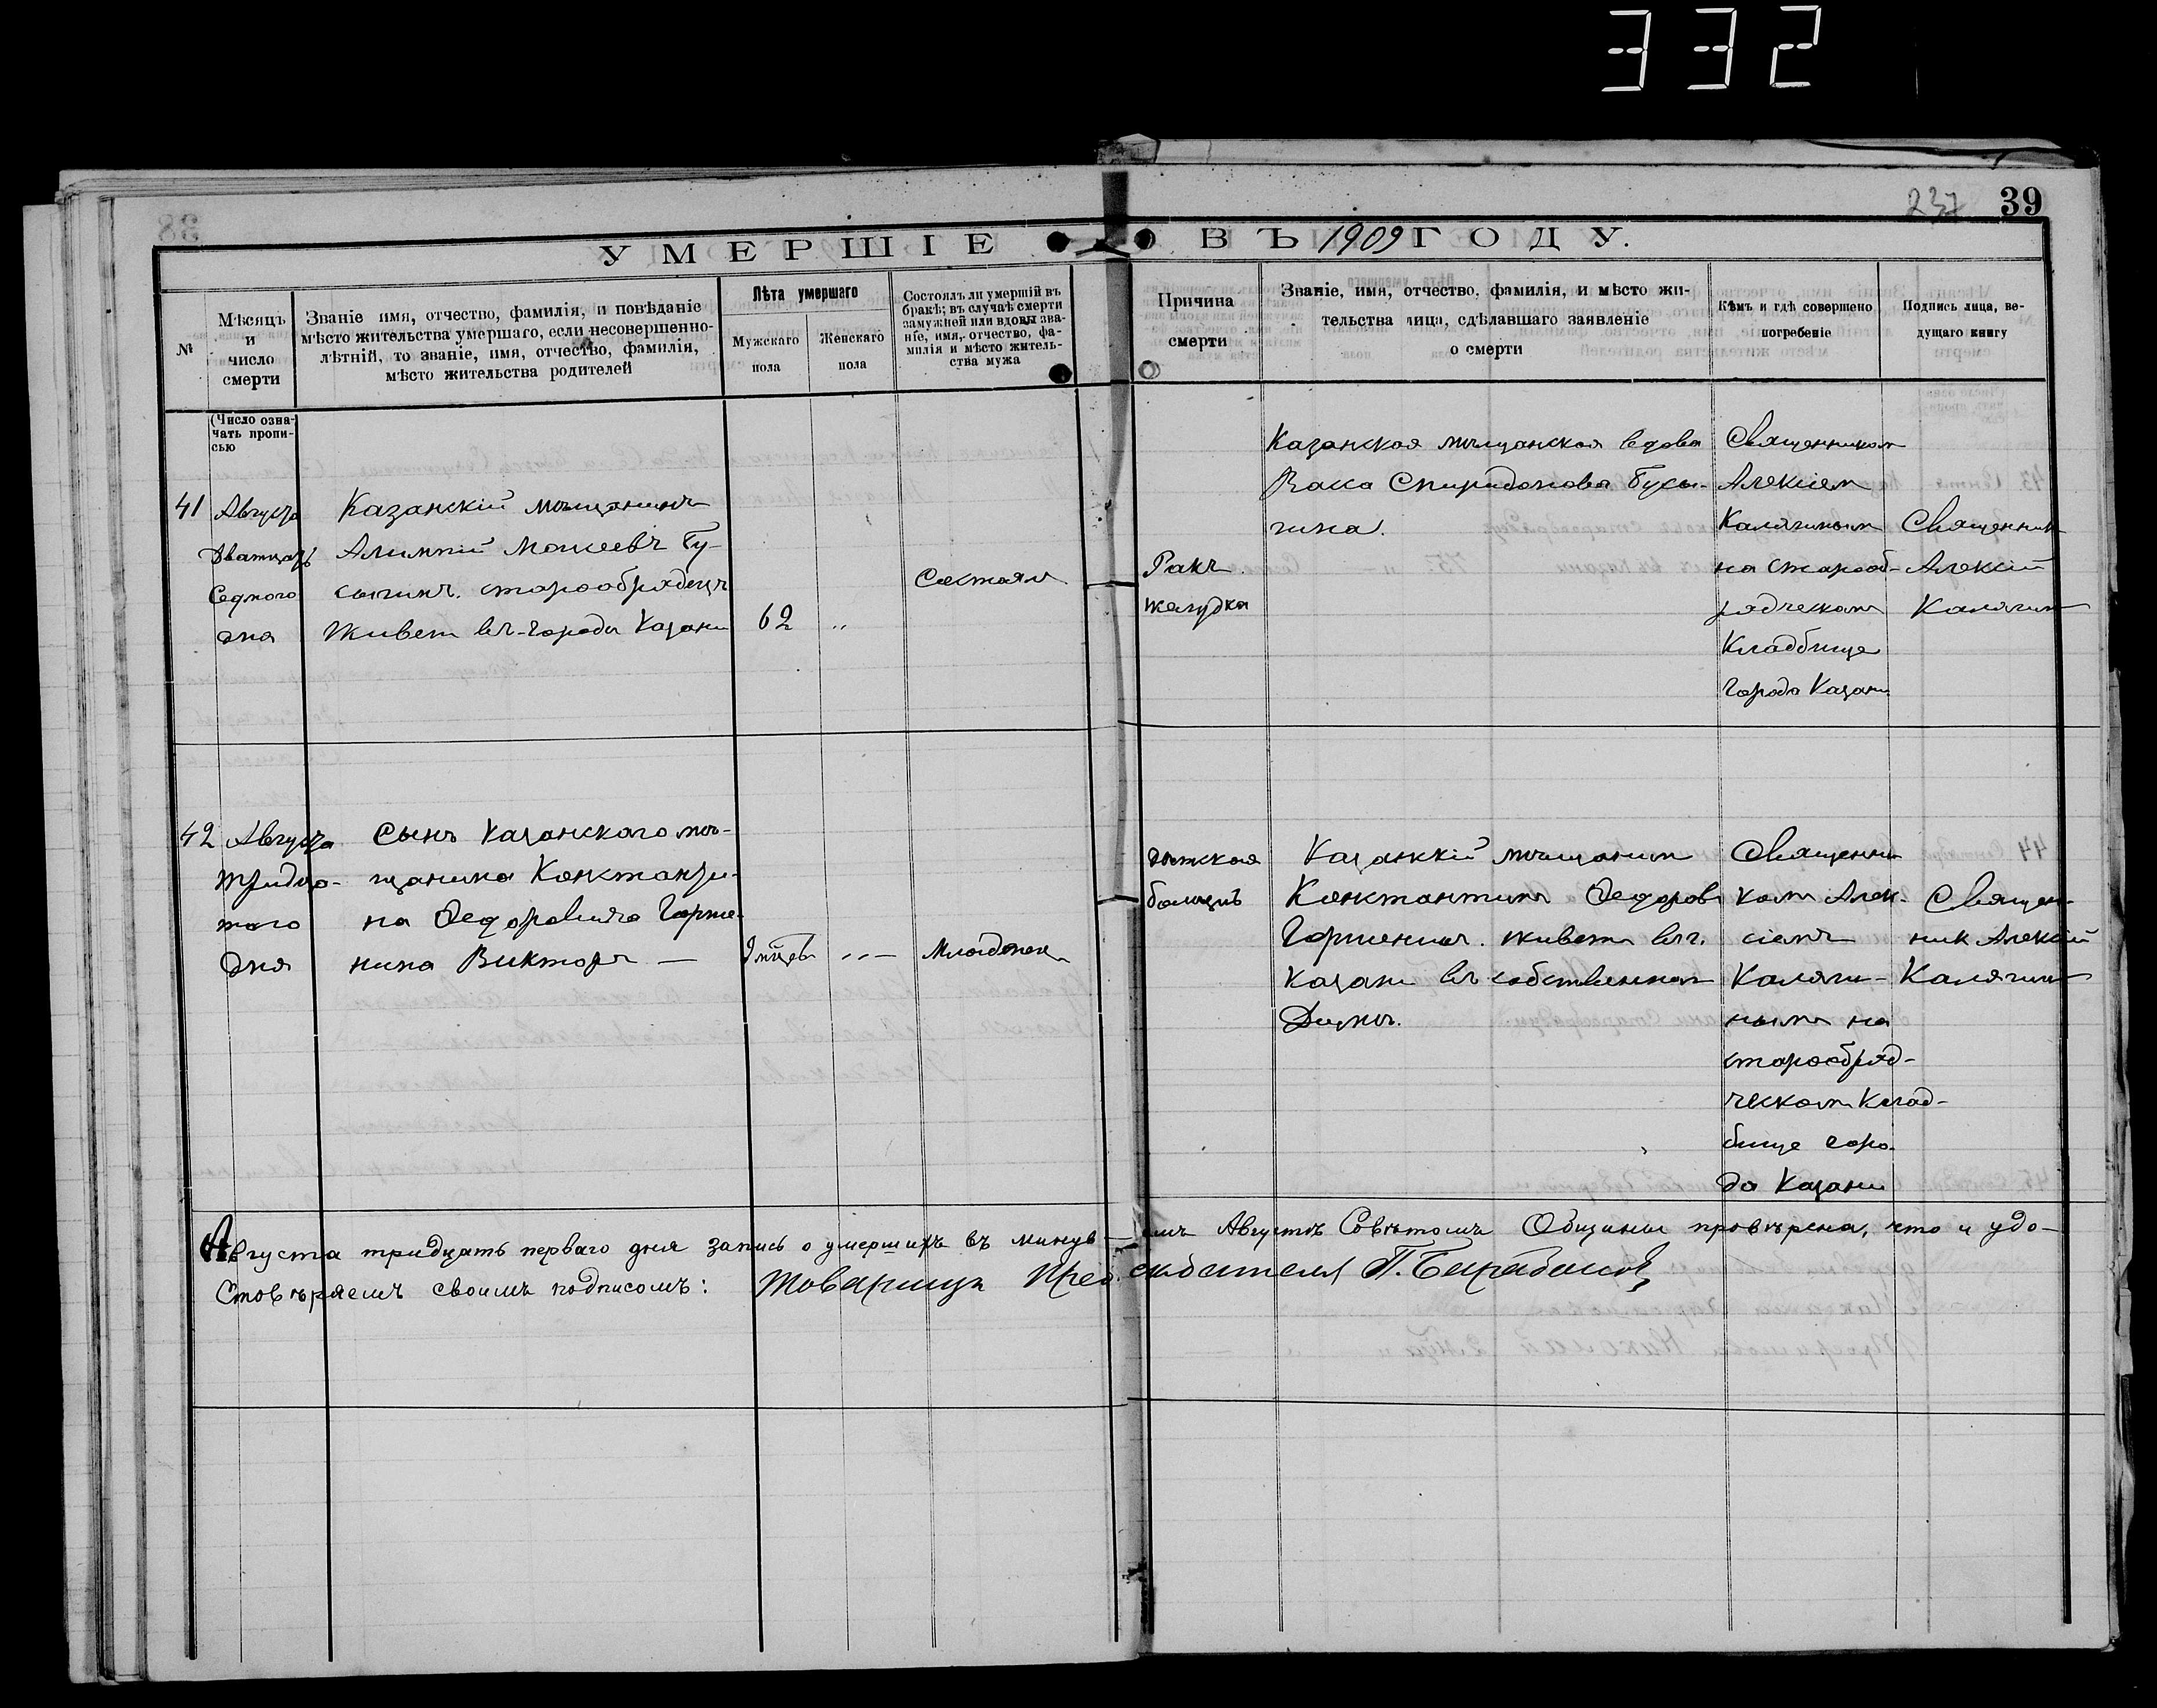 332
237 39
УМЕРШІЕ ВЪ 1909 ГОДУ.
№
Мѣсяцъ
и
число
смерти
Званіе имя, отчество, фамилія, и повѣданіе
мѣсто жительства умершаго, если несовершенно-
лѣтній, то званіе, имя, отчество, фамилія,
мѣсто жительства родителей
Лѣта умершаго
Мужскаго
пола
Женскаго
пола
Состоялъ ли умершій въ
бракѣ; въ случаѣ смерти
замужней или вдовы зва-
ніе, имя, отчество, фа-
милія и мѣсто житель-
ства мужа
Причина
смерти
Званіе, имя, отчество, фамилія, и мѣсто жи-
тельства лица, сдѣлавшаго заявленіе
о смерти
Кѣмъ и гдѣ совершено
погребеніе
Подпись лица, ве-
дущаго книгу
(Число озна-
чать пропи-
сью
41
Августа
Дватцать
Седмого
дня
Казанскій мѣщанинъ
Алимпій Мокеевъ Гу-
сыгинъ. старообрядецъ
Живет въ городѣ Казани
62
"
Состоял
Ракъ
желудка
Казанская мѣщанская вдова
Спиридонова
гина.
Священником
Алексіем
Калягиным
на старооб-
рядческом
Кладбище
города Казани
Священник
Алексій
Калягин
42
Августа
тридца-
таго
дня
Сынъ Казанскаго мѣ-
щанина Константи-
на Федоровича Горше-
нина Викторъ —
"—
Младенец
дѣтская
Казанкій мѣщанин
Константинъ Федоров
Горшенин. живет въ г.
Казани въ собственном
Домѣ.
Священни
ком Алек-
сіемъ
Каляги-
ным на
старообряд-
ческом клад-
бище горо-
да Казани
Священ-
ник Алексій
Калягин
Августа тридцать перваго дня запись о умершихъ въ минув-
емъ Августѣ Совѣтомъ Общины провѣрена, что и удо-
стовѣряемъ своимъ подписомъ: Товарищъ Предсѣдателя П. Барабанов